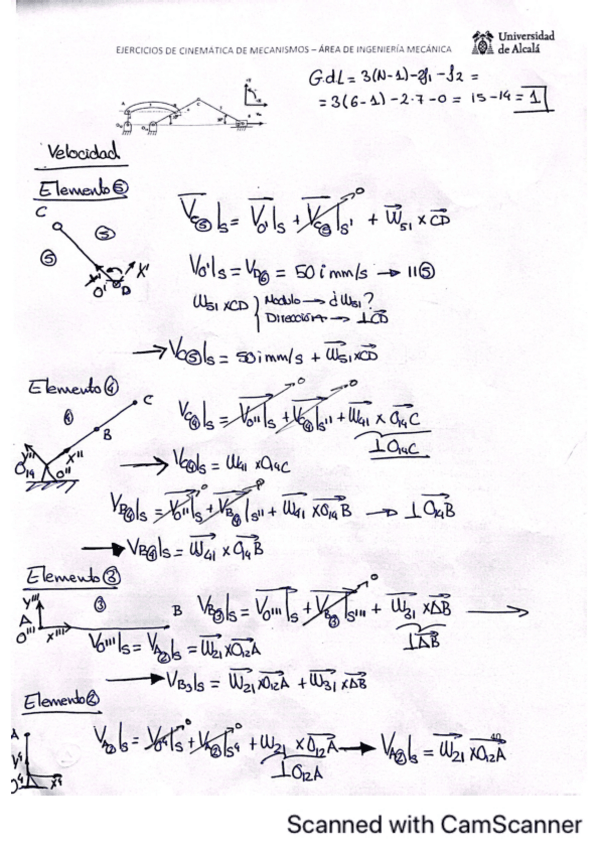 Universidad
de Alcalá
EJERCICIOS DE CINEMÁTICA DE MECANISMOS – ÁREA DE INGENIERÍA MECÁNICA
G.d.L = 3(N-1)-2j₁-j₂ =
= 3(6-1)-2·7-0 = 15-14 = 1
Velocidad
Elemento ⑤
C
⑤
⑤
X'
O'
D
V_C⑤|s = V_O'|s + V_C⑤|s' + W₅₁ x CD
V_O'|s = V_D⑥ = 50 i mm/s → 11⑤
W₅₁ xCD { Modulo → d W₅₁?
Dirección → ⊥CD
→ V_C⑤|s = 50 i mm/s + W₅₁xCD
Elemento ④
④
C
B
y'' x''
O₁₄ O''
V_C④|s = V_O''|s + V_C④|s'' + W₄₁ x O₁₄C
⊥O₁₄C
→ V_C④|s = W₄₁ xO₁₄C
V_B④|s = V_O''|s + V_B④|s'' + W₄₁ xO₁₄B → ⊥O₁₄B
→ V_B④|s = W₄₁ x O₁₄B
Elemento ③
y'''
A
O''' x'''
③
B
V_B③|s = V_O'''|s + V_B③|s''' + W₃₁ xAB
⊥AB
V_O'''|s = V_A②|s = W₂₁xO₁₂A
→ V_B₃|s = W₂₁ xO₁₂A + W₃₁ xAB
Elemento ②
A
V_A②|s = V_O⁴|s + V_A②|s⁴ + W₂₁ x O₁₂A → V_A②|s = W₂₁xO₁₂A
⊥O₁₂A
Scanned with CamScanner